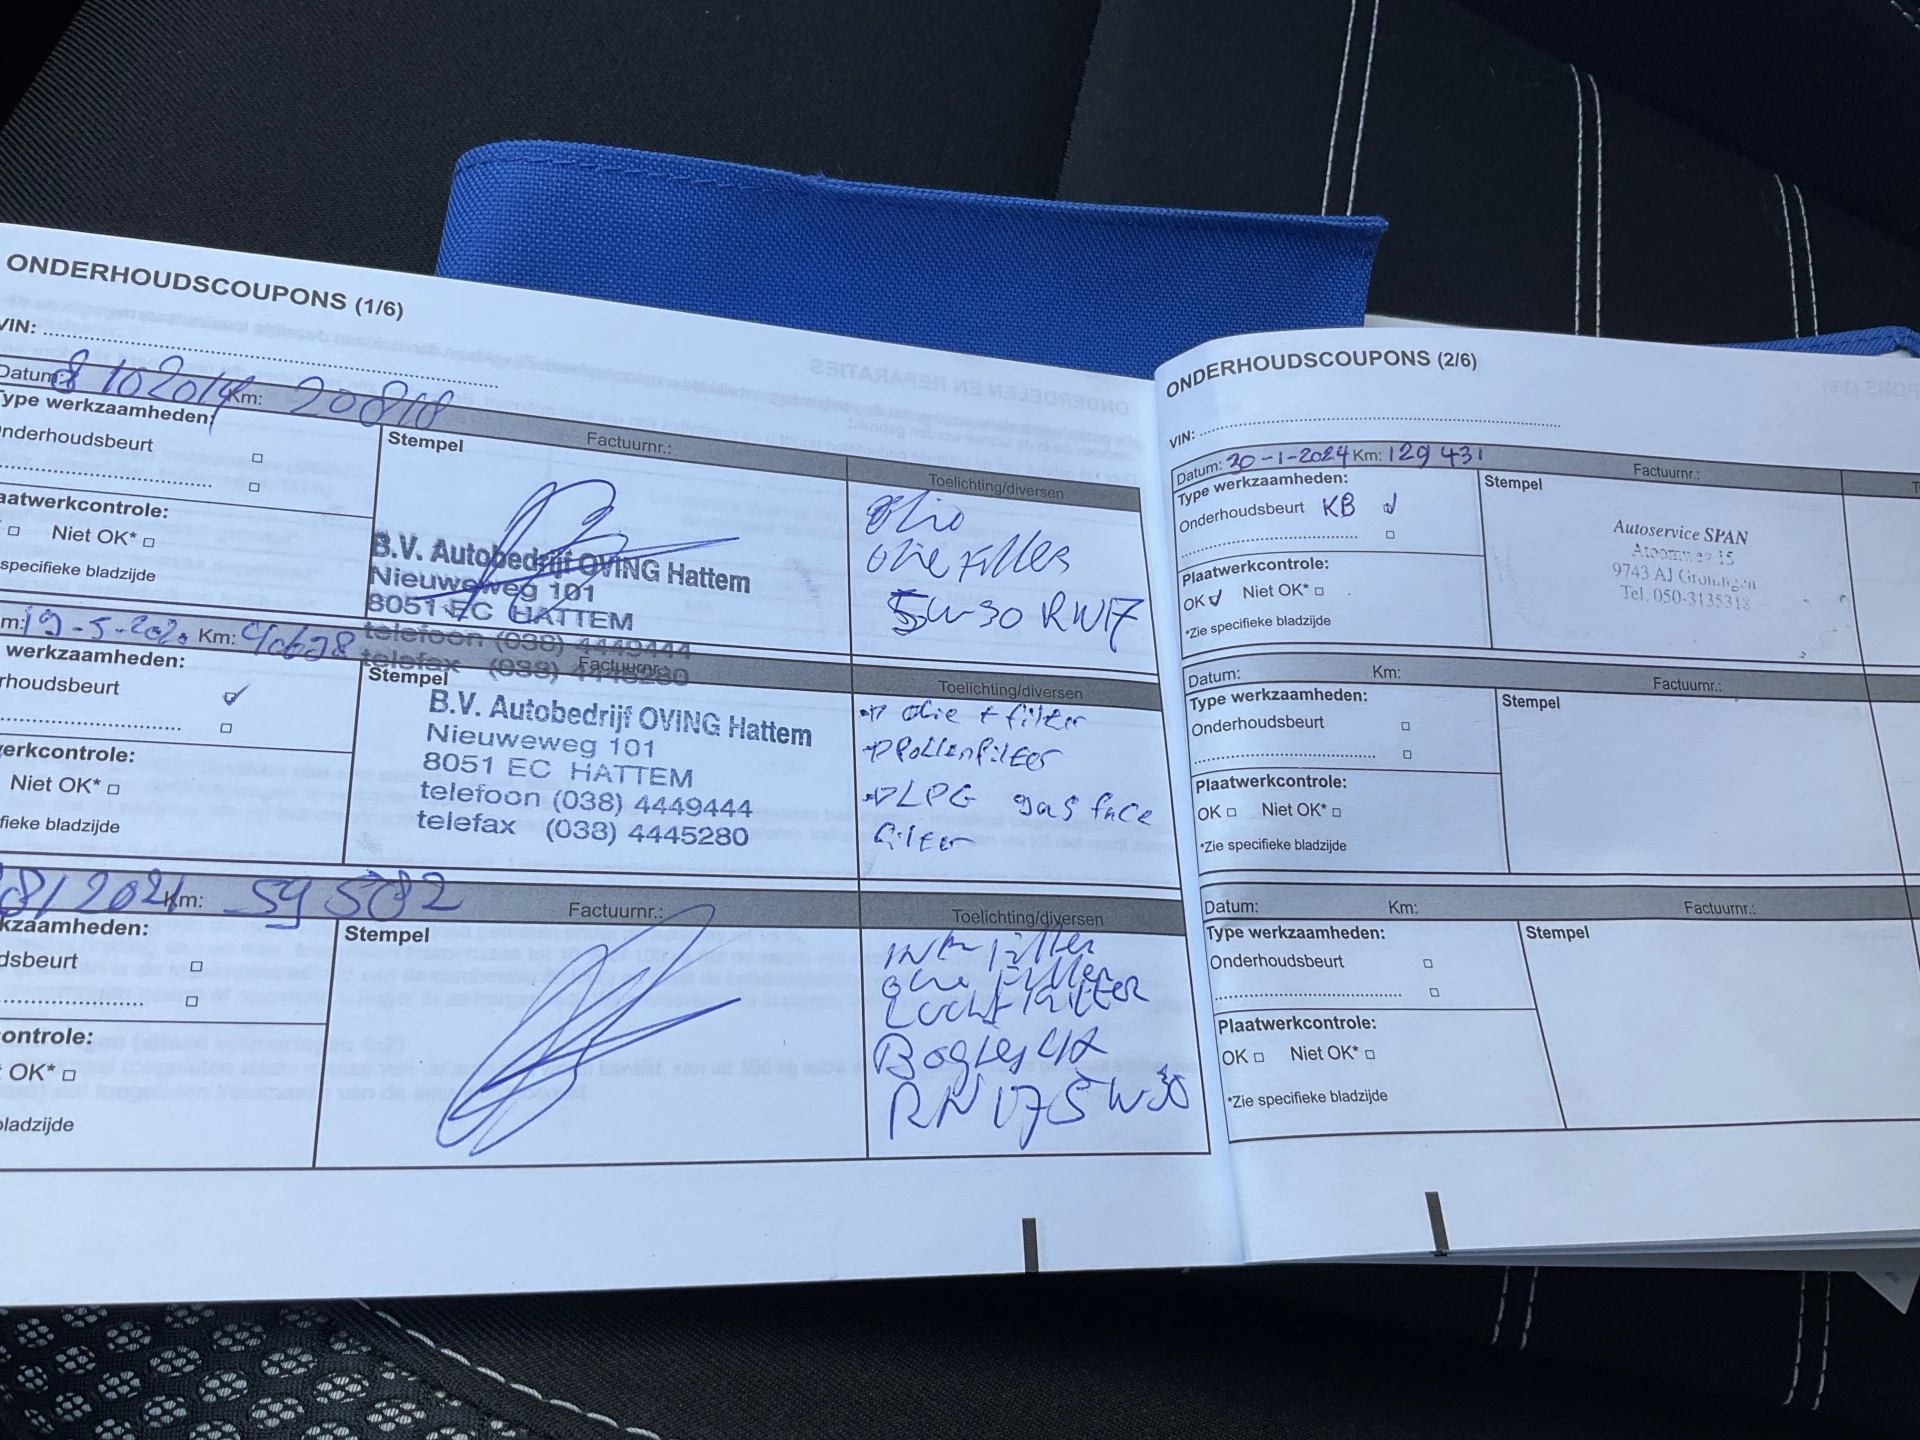 ONDERHOUDSCOUPONS (1/6)
VIN:
Datum: 8 10 2019 Km: 20818
Type werkzaamheden:
Stempel
Factuurnr.:
Toelichting/diversen
nderhoudsbeurt
aatwerkcontrole:
Niet OK*
specifieke bladzijde
B.V. Autobedrijf OVING Hattem
Nieuweweg 101
8051 EC HATTEM
telefoon (038) 4449444
telefax (038) 4445280
olie
olie Filter
5W30 RN17
m: 19-5-2020 Km:
werkzaamheden:
Stempel
Factuurnr.:
Toelichting/diversen
rhoudsbeurt
erkcontrole:
Niet OK*
fieke bladzijde
B.V. Autobedrijf OVING Hattem
Nieuweweg 101
8051 EC HATTEM
telefoon (038) 4449444
telefax (038) 4445280
olie + filter
Pollenfilter
LPG gas face
filter
8/2021 Km: 59 582
kzaamheden:
Stempel
Factuurnr.:
Toelichting/diversen
dsbeurt
ontrole:
OK*
bladzijde
Filter
olie Filter
Luchtfilter
RN 17 5W30
ONDERHOUDSCOUPONS (2/6)
VIN:
Datum: 30-1-2024 Km: 129 431
Factuurnr.:
Type werkzaamheden:
Stempel
Onderhoudsbeurt KB
Plaatwerkcontrole:
OK Niet OK*
*Zie specifieke bladzijde
Autoservice SPAN
Atoomweg 15
9743 AJ Groningen
Tel. 050-3135318
Datum: Km: Factuurnr.:
Type werkzaamheden:
Stempel
Onderhoudsbeurt
Plaatwerkcontrole:
OK Niet OK*
*Zie specifieke bladzijde
Datum: Km: Factuurnr.:
Type werkzaamheden:
Stempel
Onderhoudsbeurt
Plaatwerkcontrole:
OK Niet OK*
*Zie specifieke bladzijde